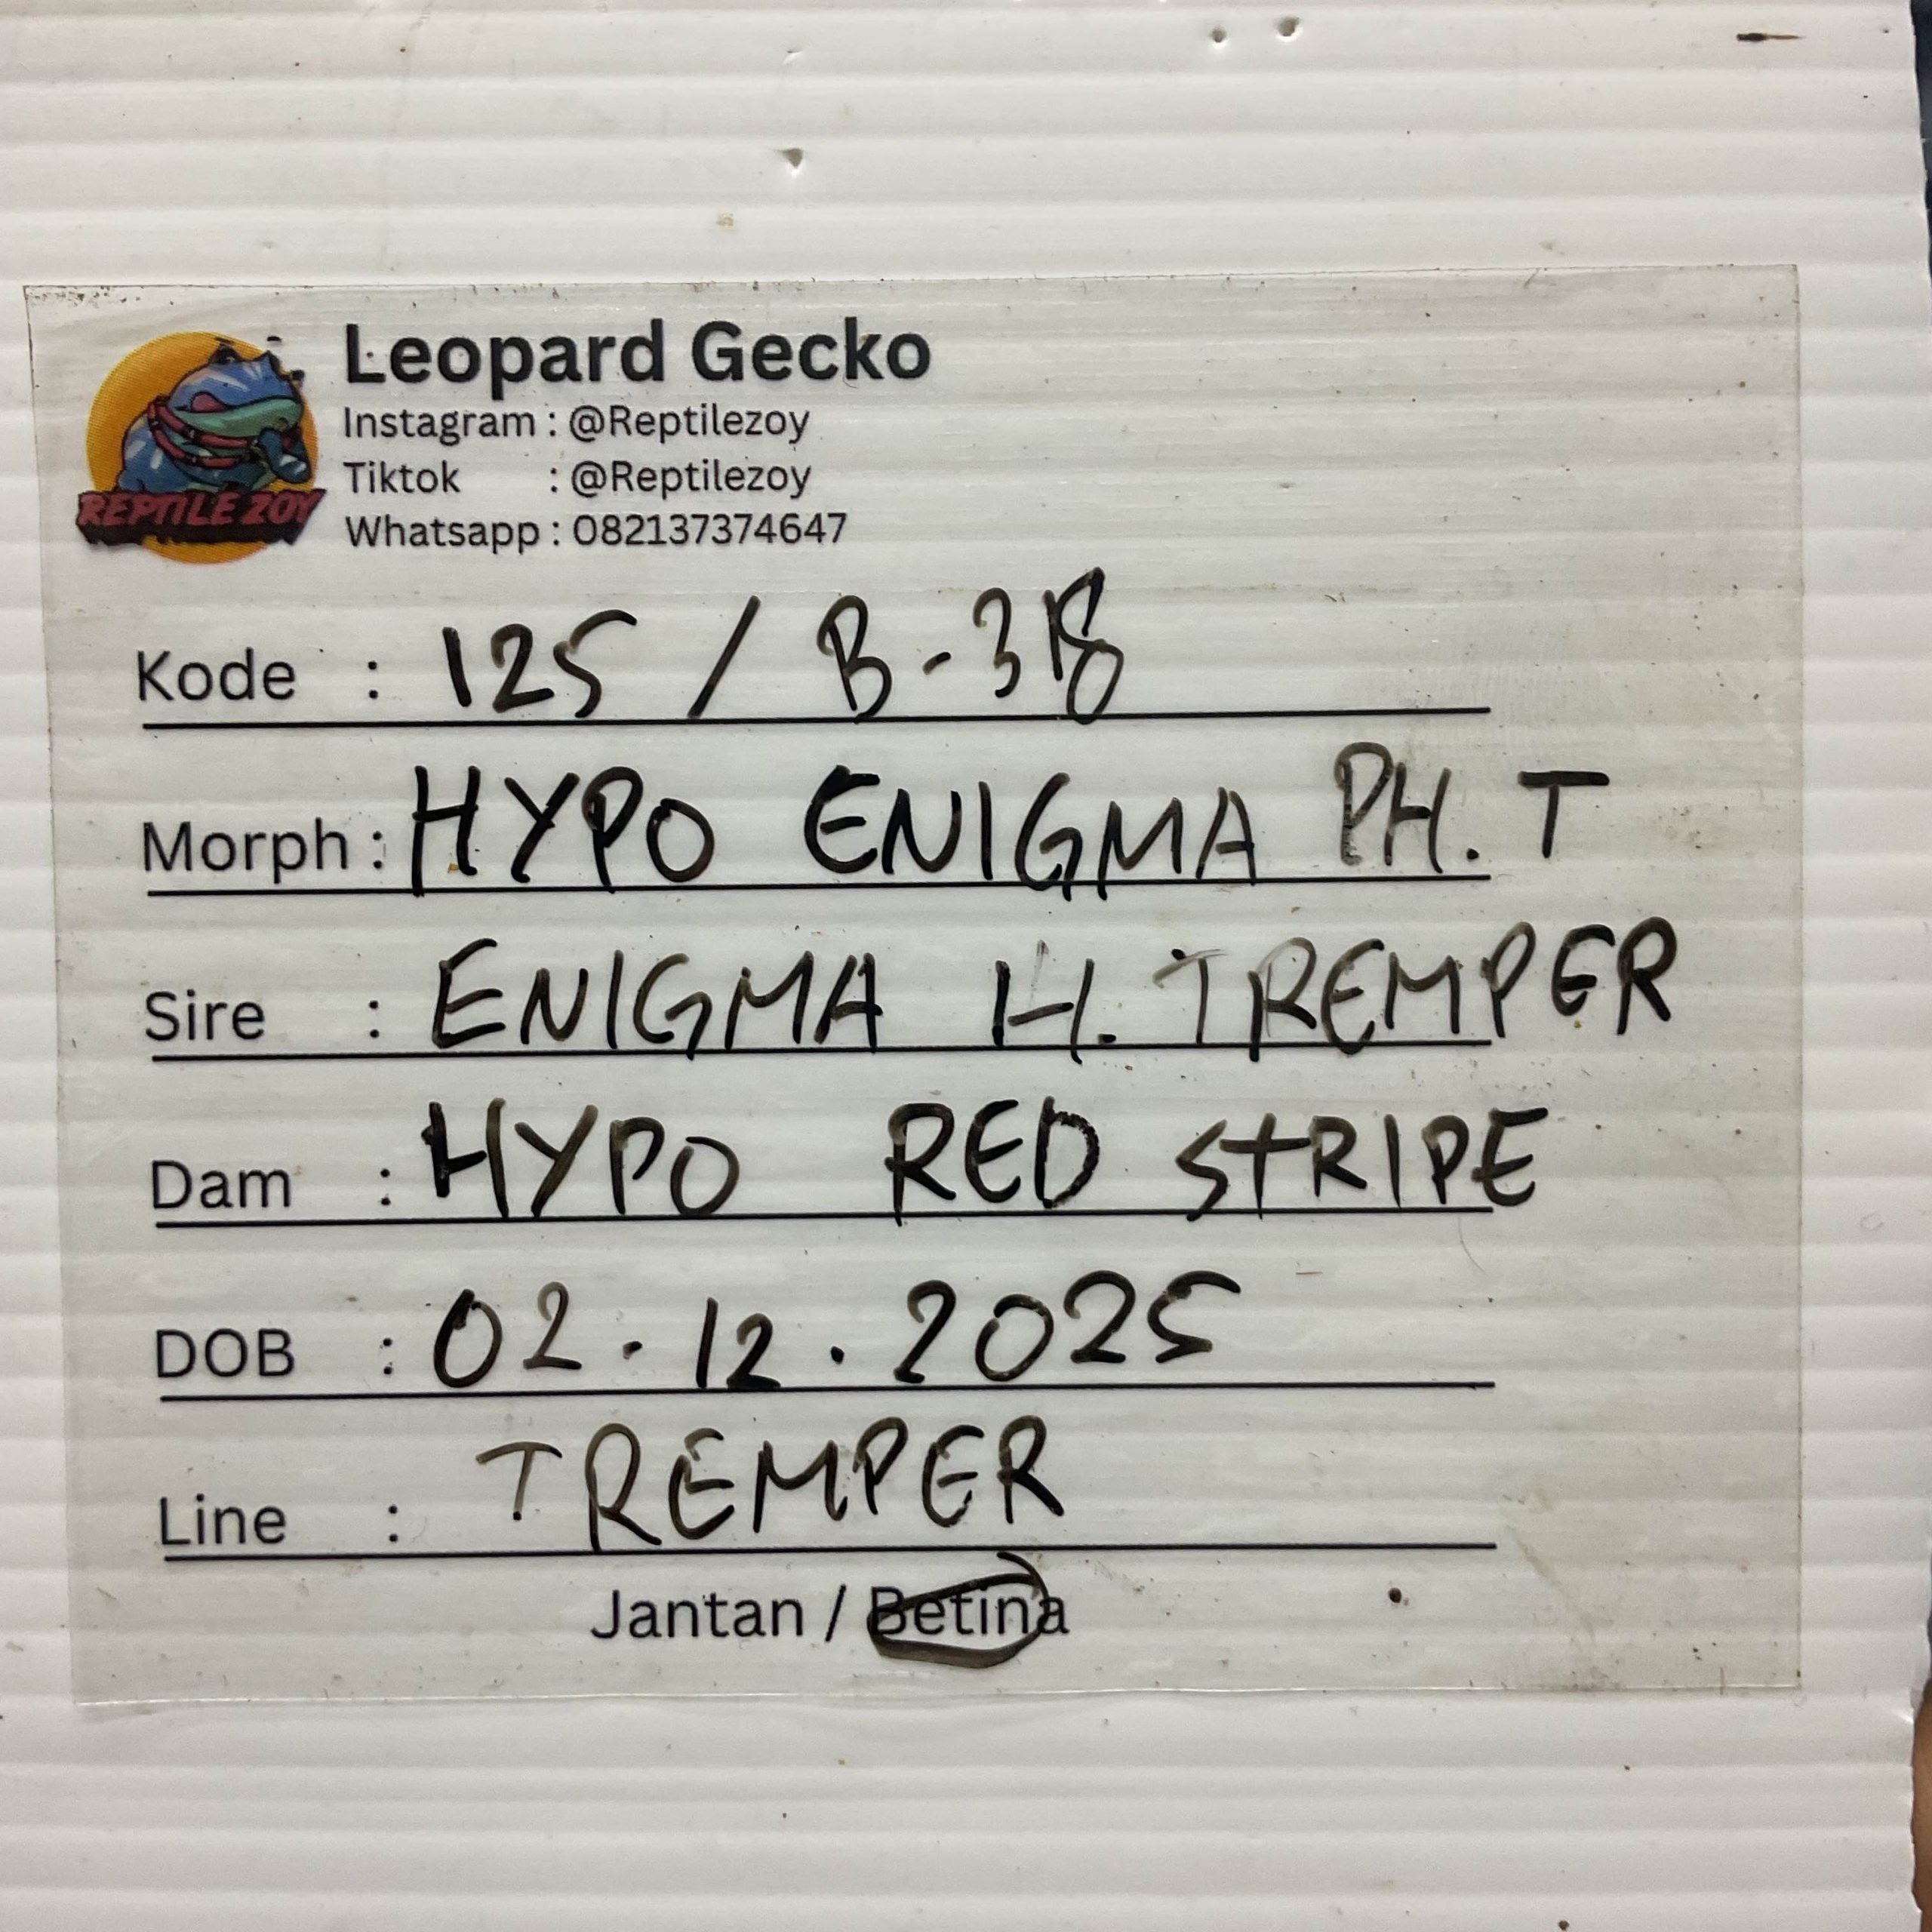 Leopard Gecko
Instagram : @Reptilezoy
Tiktok : @Reptilezoy
Whatsapp : 082137374647
REPTILE ZOY
Kode : 125 / B-318
Morph : HYPO ENIGMA PH. T
Sire : ENIGMA H. TREMPER
Dam : HYPO RED STRIPE
DOB : 02.12.2025
Line : TREMPER
Jantan / Betina